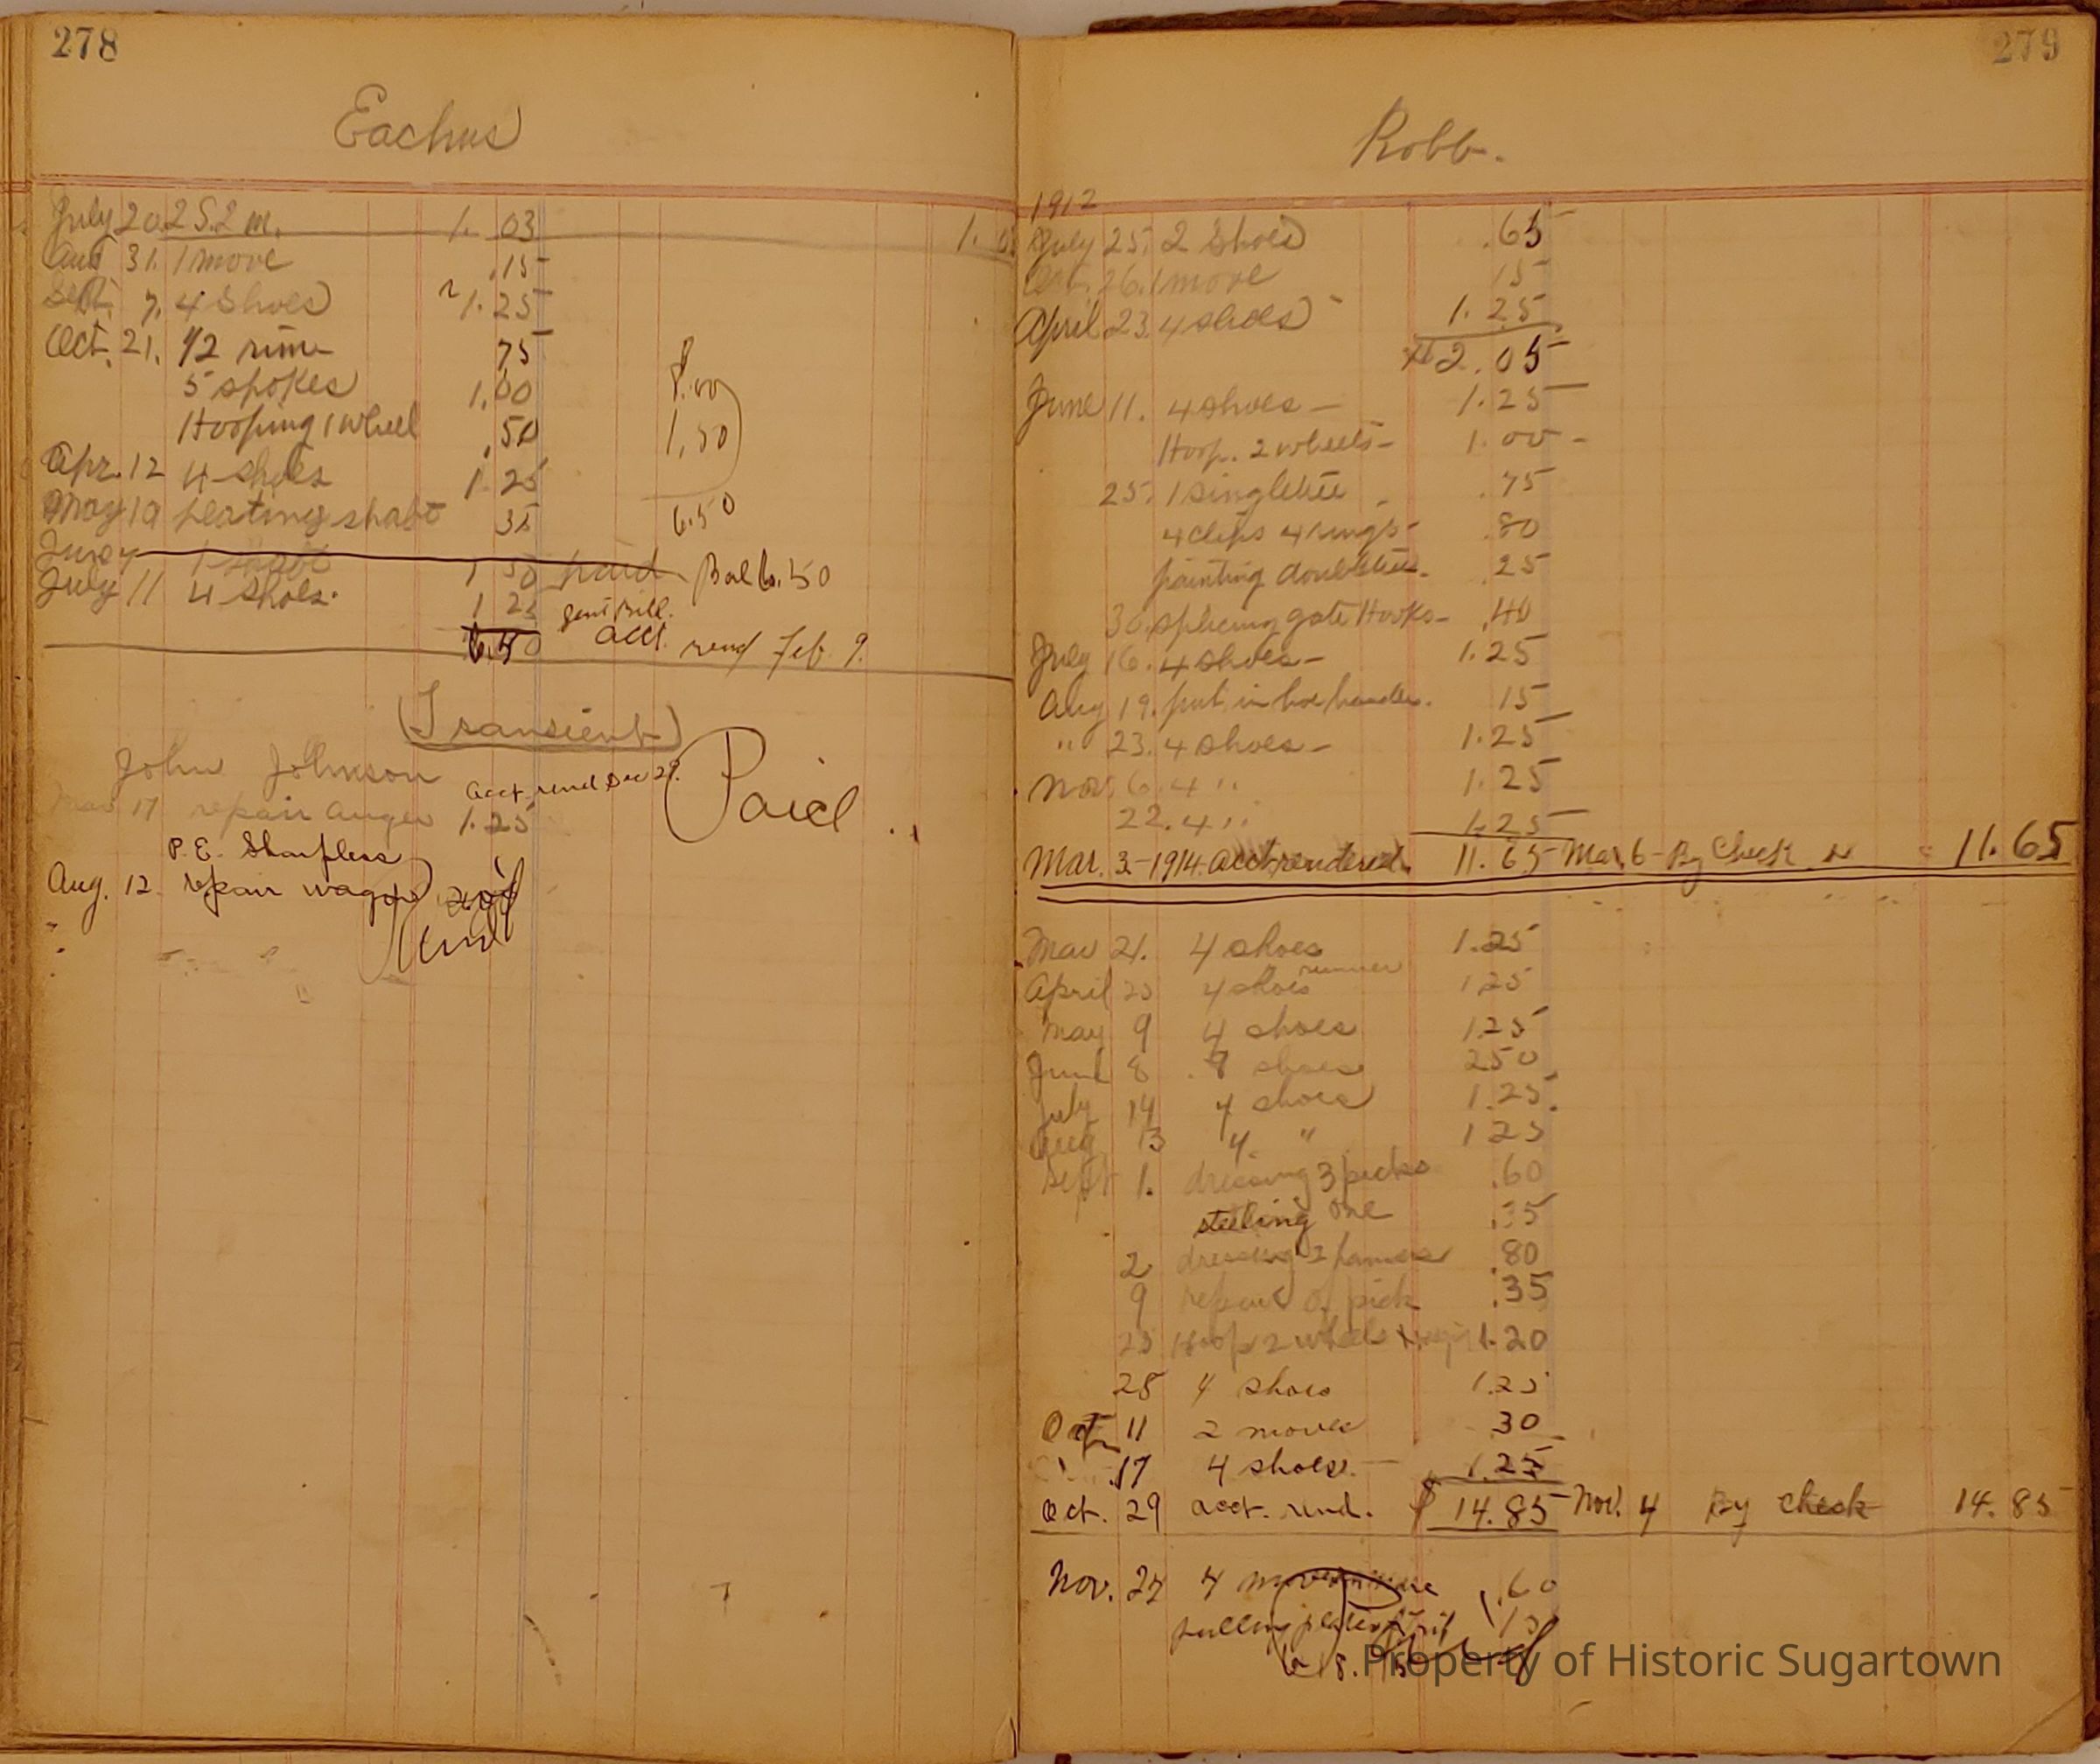 278
Eachus
July 20. 2 S. 2 m. 1. 03 1. 0
Aug 31. 1 move .15
Sept. 7. 4 Shoes 1.25
Oct. 21. 1/2 rim 75
5 spokes 1.00
Hooping 1 wheel .50
Apr. 12 4 shoes 1 25
May 19 shaft 35
1 50 paid Bal 6.50
July 11 4 Shoes. 1 25 sent Bill.
6.50 acct. rend Feb 9.
8.00
1.50
6.50
(Transient)
John Johnson acct. rend Dec 29.
17 repair auger 1.25
Paid
P. E. Sharpless
Aug. 12. repair wagon
279
Robb.
1912
July 25. 2 Shoes .65
Oct. 26. 1 move 15
April 23. 4 shoes 1.25
2.05
June 11. 4 shoes 1.25
Hoop. 2 wheels 1.00
25. 1 Singletree .75
4 clips 4 rings .80
painting doubletree .25
30. splicing gate Hooks .40
July 16. 4 shoes 1.25
Aug 19. put in hoe handle. 15
" 23. 4 shoes 1.25
Nov. 6. 4 " 1.25
22. 4 " 1.25
Mar. 3 - 1914. acct rendered. 11.65 Mar. 6 - By Check 11.65
Mar 21. 4 shoes 1.25
April 25 4 shoes 1 25
May 9 4 shoes 1.25
June 8 shoes 2 50
July 14 4 shoes 1.25.
Aug 13 4 " 1 25
Sept 1. dressing 3 picks .60
steeling one .35
2 dressing .80
9 repair of pick .35
25 Hoop 2 wheels 1.20
28 4 shoes 1.25
Oct 11 2 moves 30
17 4 shoes. 1.25
Oct. 29 acct. rend. $ 14.85 Nov. 4 By Check 14.85
Nov. 27 4 .60
pulling
Property of Historic Sugartown